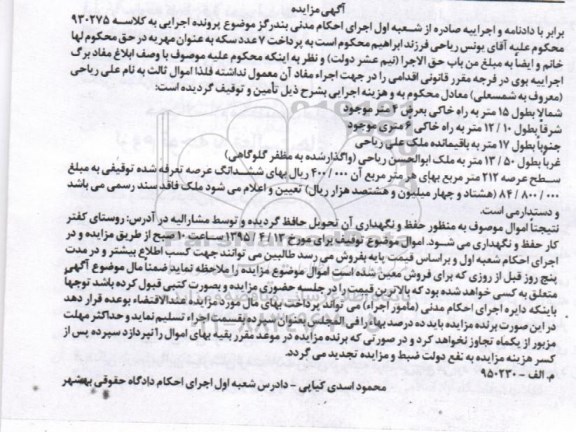 آگهی مزایده
برابر با دادنامه و اجراییه صادره از شعبه اول اجرای احکام مدنی بندرگز موضوع پرونده اجرایی به کلاسه ۹۳۰۲۷۵
محکوم علیه آقای یونس ریاحی فرزند ابراهیم محکوم است به پرداخت ۷ عدد سکه به عنوان مهریه در حق محکوم لها
خانم و ایضا به مبلغ من باب حق الاجرا (نیم عشر دولت) و نظر به اینکه محکوم علیه موصوف با وصف ابلاغ مفاد برگ
اجراییه بوی در فرجه مقرر قانونی اقدامی را در جهت اجراء مفاد آن معمول نداشته فلذا اموال ثالث به نام علی ریاحی
(معروف به شمسعلی) معادل محکوم به و هزینه اجرایی بشرح ذیل تأمین و توقیف گردیده است:
شمالا بطول ۱۵ متر به راه خاکی بعرض ۴ متر موجود
شرقا بطول ۱۰ / ۱۲ متر به راه خاکی ۶ متری موجود
جنوبا بطول ۱۷ متر به باقیمانده ملک علی ریاحی
غربا بطول ۵۰ / ۱۳ متر به ملک ابوالحسن ریاحی (واگذارشده به مظفر گلوگاهی)
سطح عرصه ۲۱۲ متر مربع بهای هر متر مربع آن ۰۰۰ / ۴۰۰ ریال بهای ششدانگ عرصه تعرفه شده توقیفی به مبلغ
۰۰۰ / ۸۰۰ / ۸۴ (هشتاد و چهار میلیون و هشتصد هزار ریال) تعیین و اعلام می شود ملک فاقد سند رسمی می باشد
و دستدارمی است.
نتیجتا اموال موصوف به منظور حفظ و نگهداری آن تحویل حافظ گردیده و توسط مشارالیه در آدرس: روستای کفتر
کار حفظ و نگهداری می شود. اموال موضوع توقیف برای مورخ ۱۳ / ۴ / ۱۳۹۵ ساعت ۱۰ صبح از طریق مزایده و در
اجرای احکام شعبه اول و براساس قیمت پایه بفروش می رسد طالبین می توانند جهت کسب اطلاع بیشتر و در مدت
پنج روز قبل از روزی که برای فروش معین شده است اموال موضوع مزایده را ملاحظه نماید ضمنا مال موضوع آگهی
متعلق به کسی خواهد شده بود که بالاترین قیمت را در جلسه حضوری مزایده و بصورت کتبی قبول کرده باشد توجها
باینکه دایره اجرای احکام مدنی (مأمور اجراء) می تواند پرداخت بهای مال مورد مزایده عندالاقتضاء بوعده قرار دهد
در این صورت برنده مزایده باید ده درصد بها را فی المجلس بعنوان سپرده بقسمت اجراء تسلیم نماید و حداکثر مهلت
مزبور از یکماه تجاوز نخواهد کرد و در صورتی که برنده مزایده در موعد مقرر بقیه بهای اموال را نپردازد سپرده پس از
کسر هزینه مزایده به نفع دولت ضبط و مزایده تجدید می گردد.
م. الف - ۹۵۰۲۳۰
محمود اسدی کیاپی - دادرس شعبه اول اجرای احکام دادگاه حقوقی بهشهر